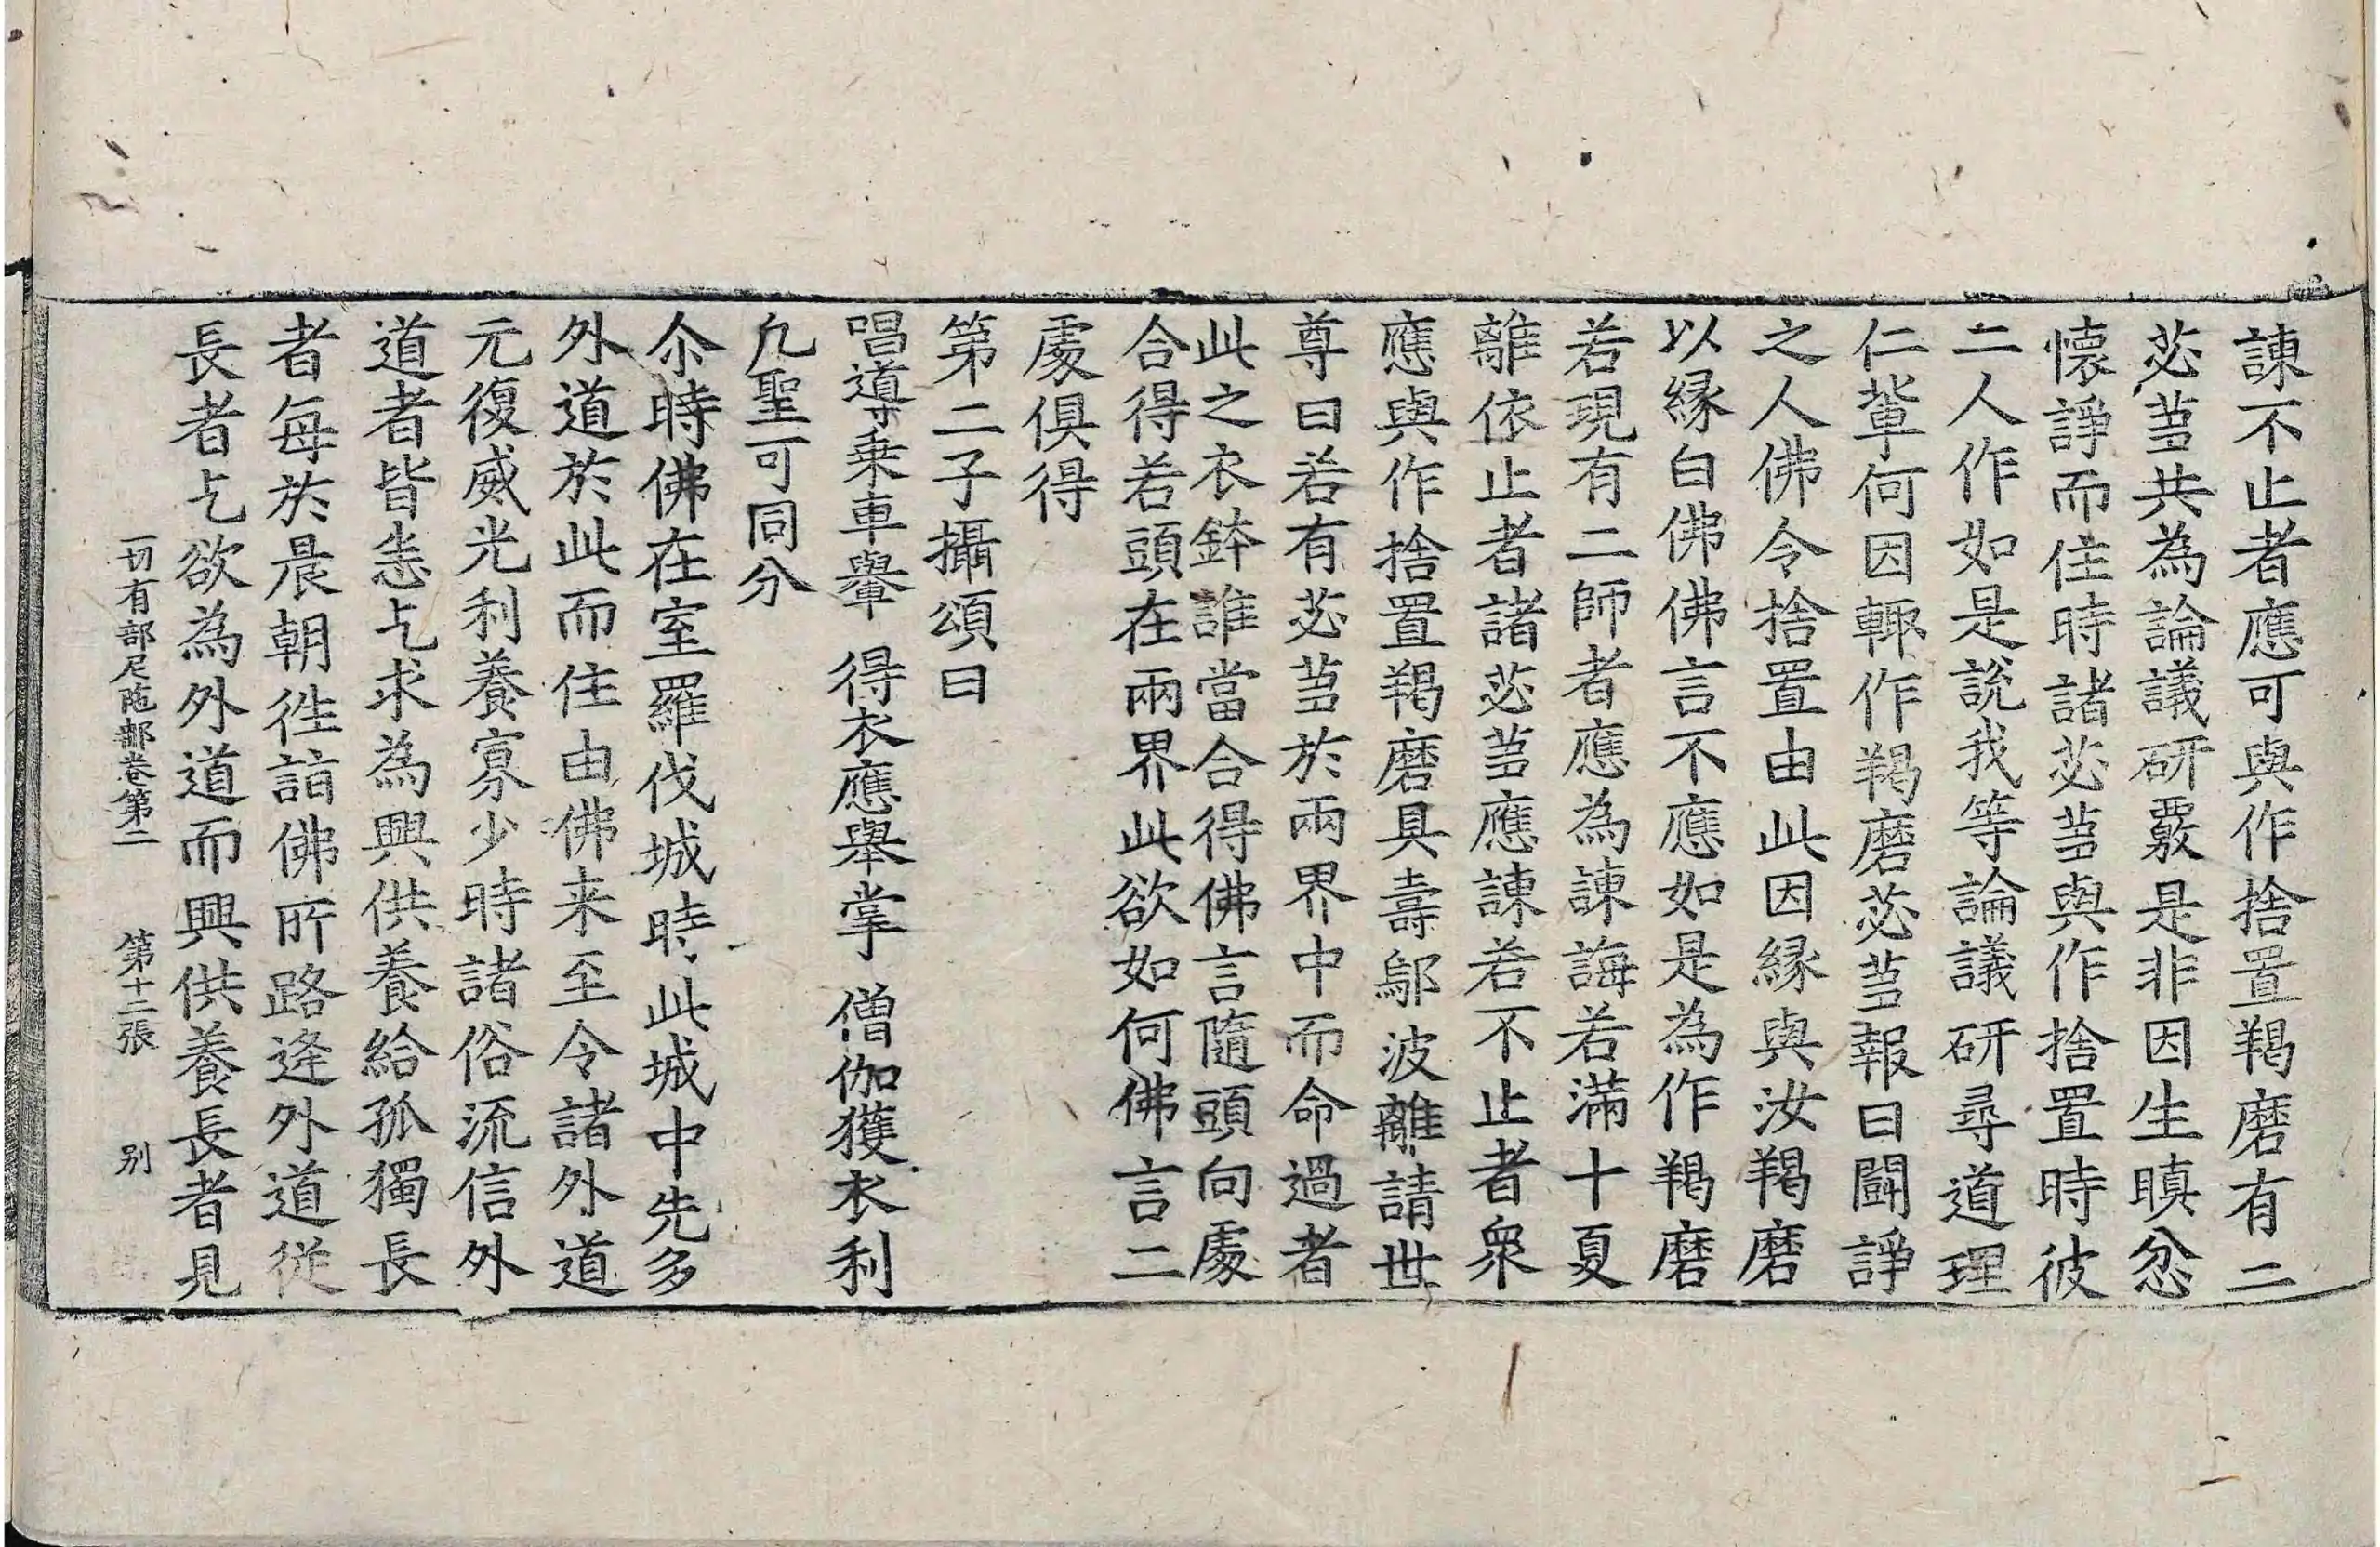 諫不止者應可與作捨置羯磨有二
苾芻共為論議研覈是非因生瞋忿
懷諍而住時諸苾芻與作捨置時彼
二人作如是說我等論議研尋道理
仁輩何因輒作羯磨苾芻報曰鬪諍
之人佛令捨置由此因緣與汝羯磨
以緣白佛佛言不應如是為作羯磨
若現有二師者應為諫誨若滿十夏
離依止者諸苾芻應諫若不止者衆
應與作捨置羯磨具壽鄔波離請世
尊曰若有苾芻於兩界中而命過者
此之衣鉢誰當合得佛言隨頭向處
合得若頭在兩界此欲如何佛言二
處俱得
第二子攝頌曰
唱導乘車轝 得衣應舉掌 僧伽獲衣利
凡聖可同分
尒時佛在室羅伐城時此城中先多
外道於此而住由佛来至令諸外道
元復威光利養寡少時諸俗流信外
道者皆恚乞求為興供養給孤獨長
者每於晨朝徃詣佛所路逢外道從
長者乞欲為外道而興供養長者見
一切有部尼陁那卷第二 第十二張 别